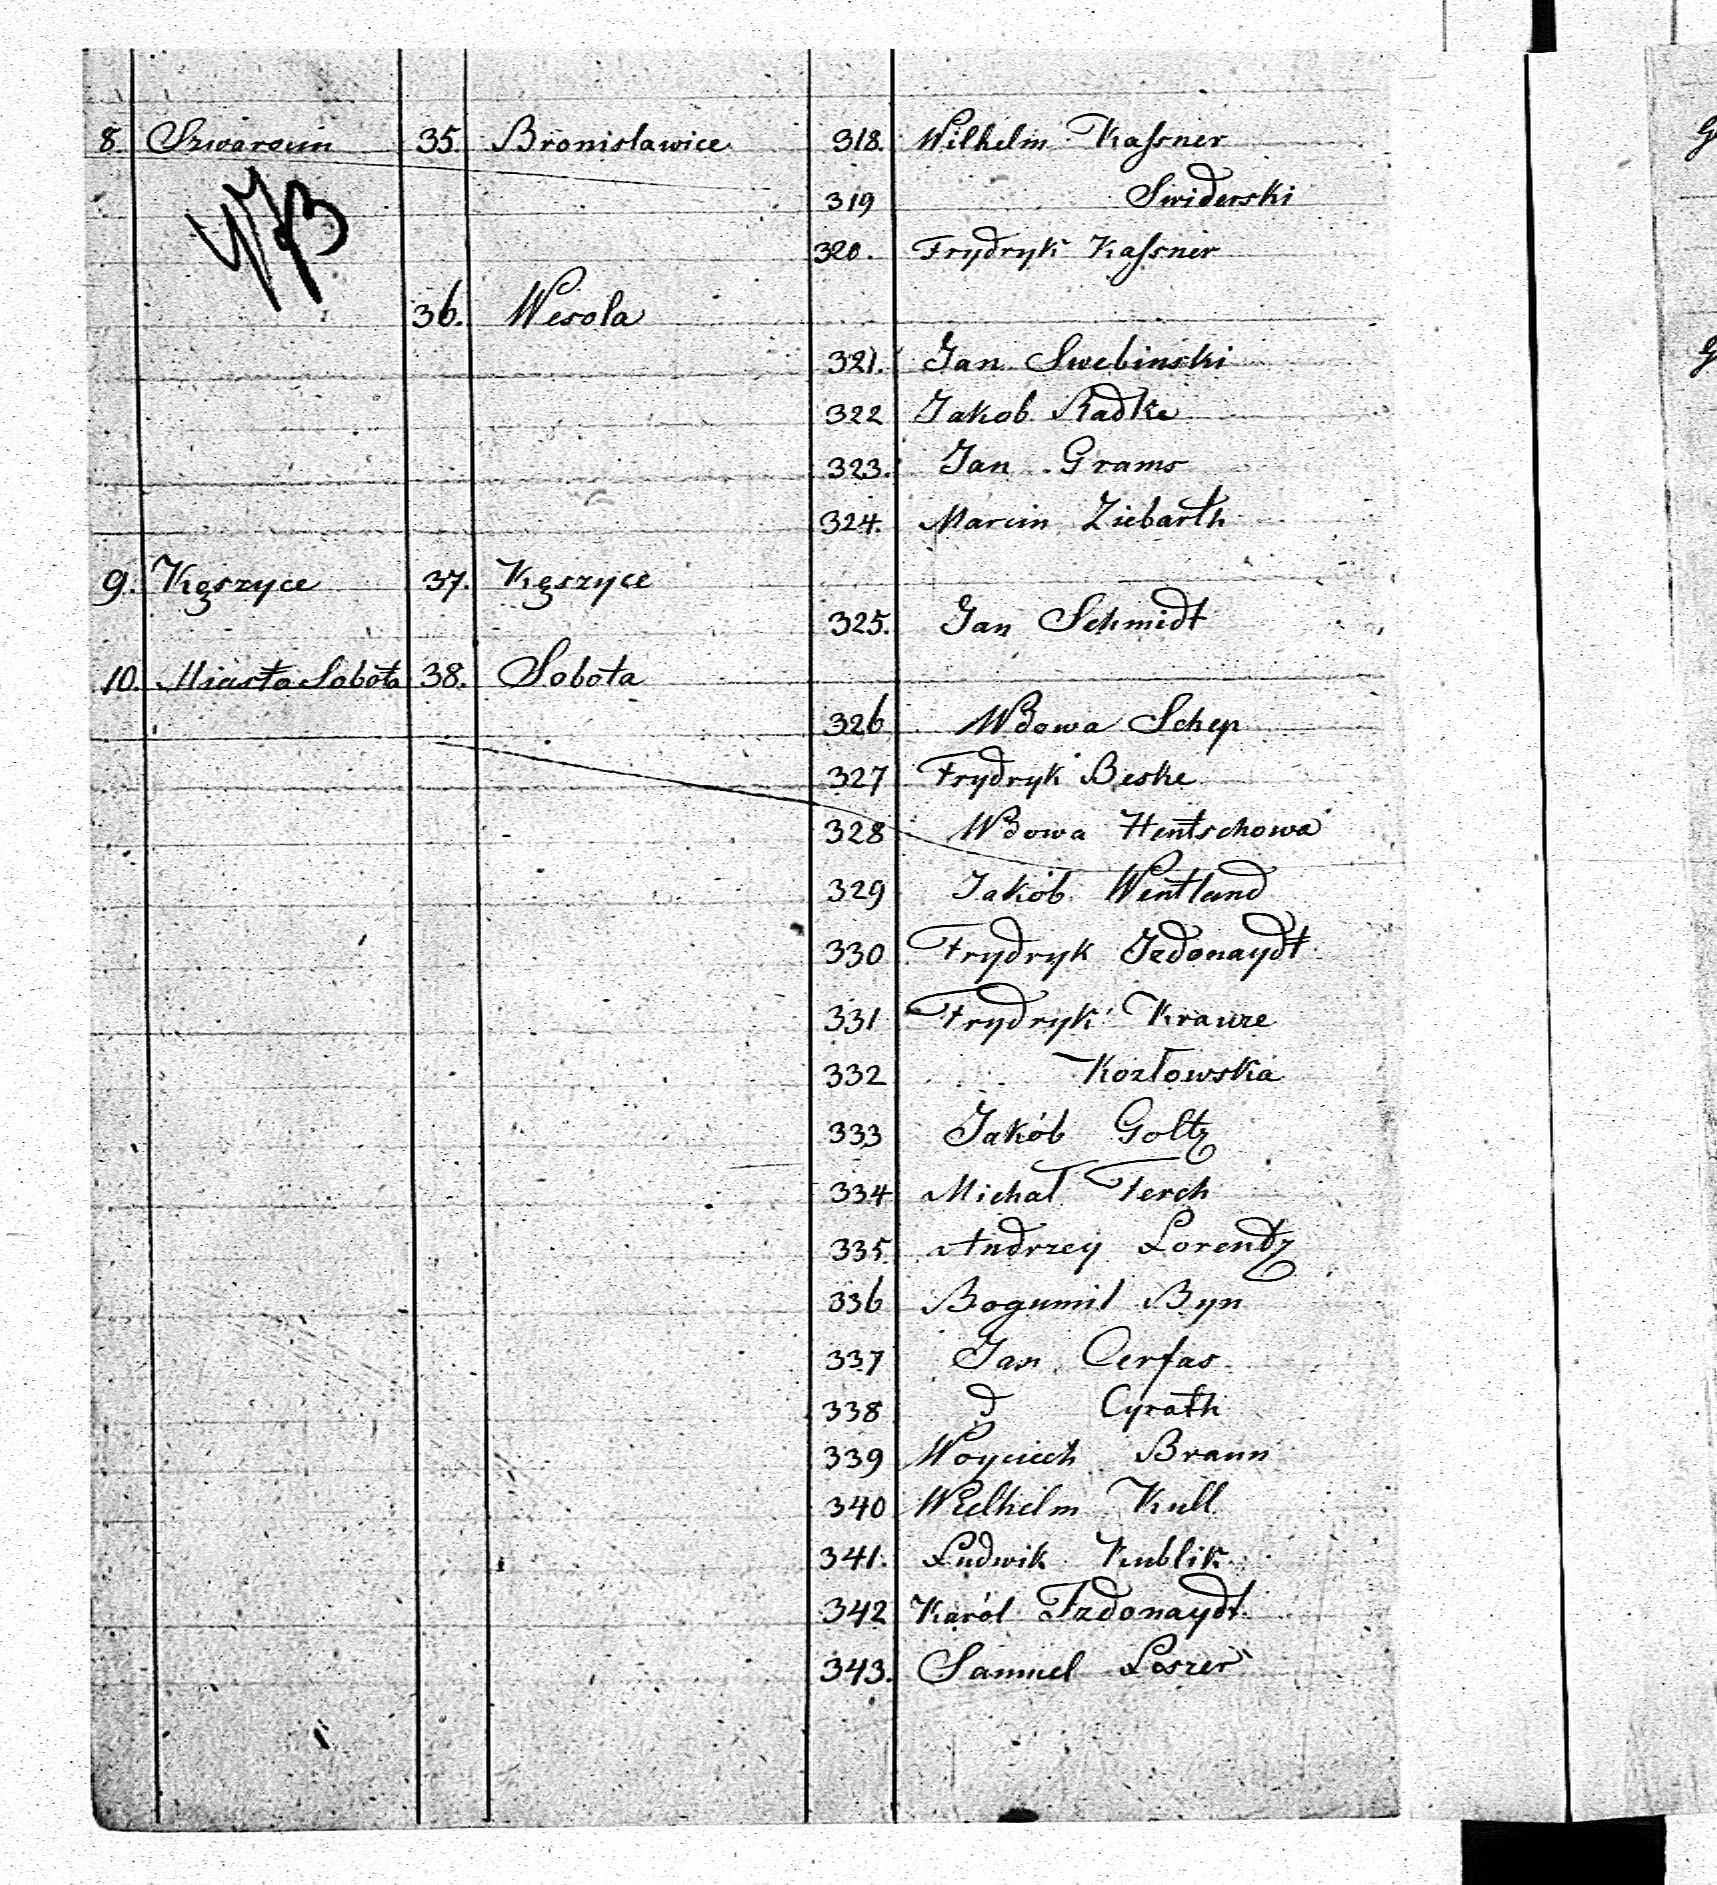 8. Szwarocin 35. Bronisławice 318. Wilhelm Kaſsner
319 Swiderski
320. Frydryk Kaſsner
36. Wesoła
321. Jan Swebinski
322 Jakob Radke
323. Jan Grams
324. Marcin Ziebarth
9. Kęszyce 37. Kęszyce
325. Jan Schmidt
10. Miasto Sobota 38. Sobota
326 Wdowa Schep
327 Frydryk Beske
328 Wdowa Hentschowa
329 Jakób Wentland
330 Frydryk Izdonaydt
331 Frydryk Krauze
332 Kozłowska
333 Jakób Goltz
334 Michał Ferch
335. Andrzey Lorendz
336 Bogumil Byn
337 Jan Cerfas
338 d Cyrath
339 Woyciech Braun
340 Wielhelm Kull
341. Ludwik Kublik
342 Karól Izdonaydt
343. Samuel Loszer